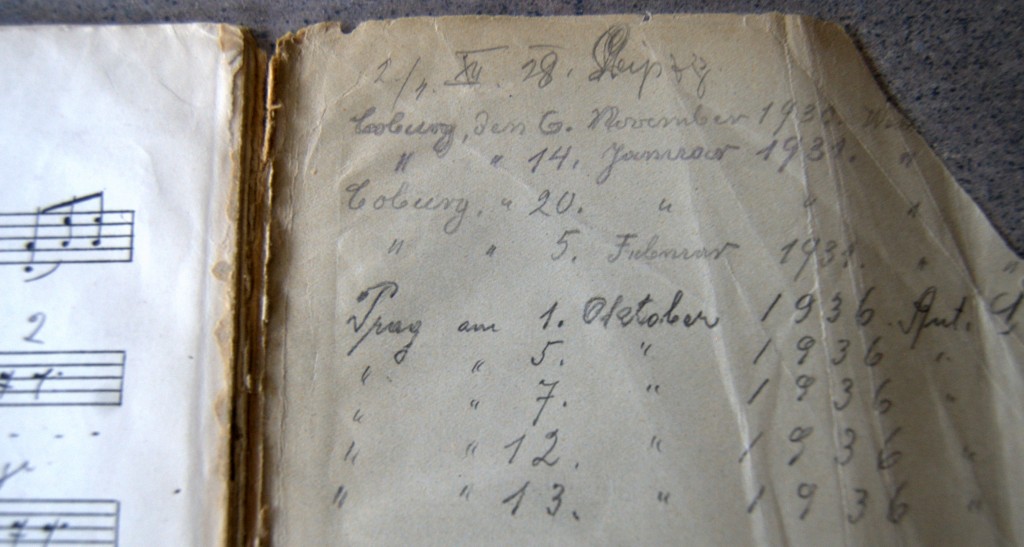 2
XII. 28. Leipzig.
Coburg, den 6. November 193
" " 14. Januar 1931. "
Coburg, " 20. " " "
" " 5. Februar 1931. " "
Prag am 1. Oktober 1936 Ant.
" " 5. " 1936 "
" " 7. " 1936 "
" " 12. " 1936 "
" " 13. " 1936 "